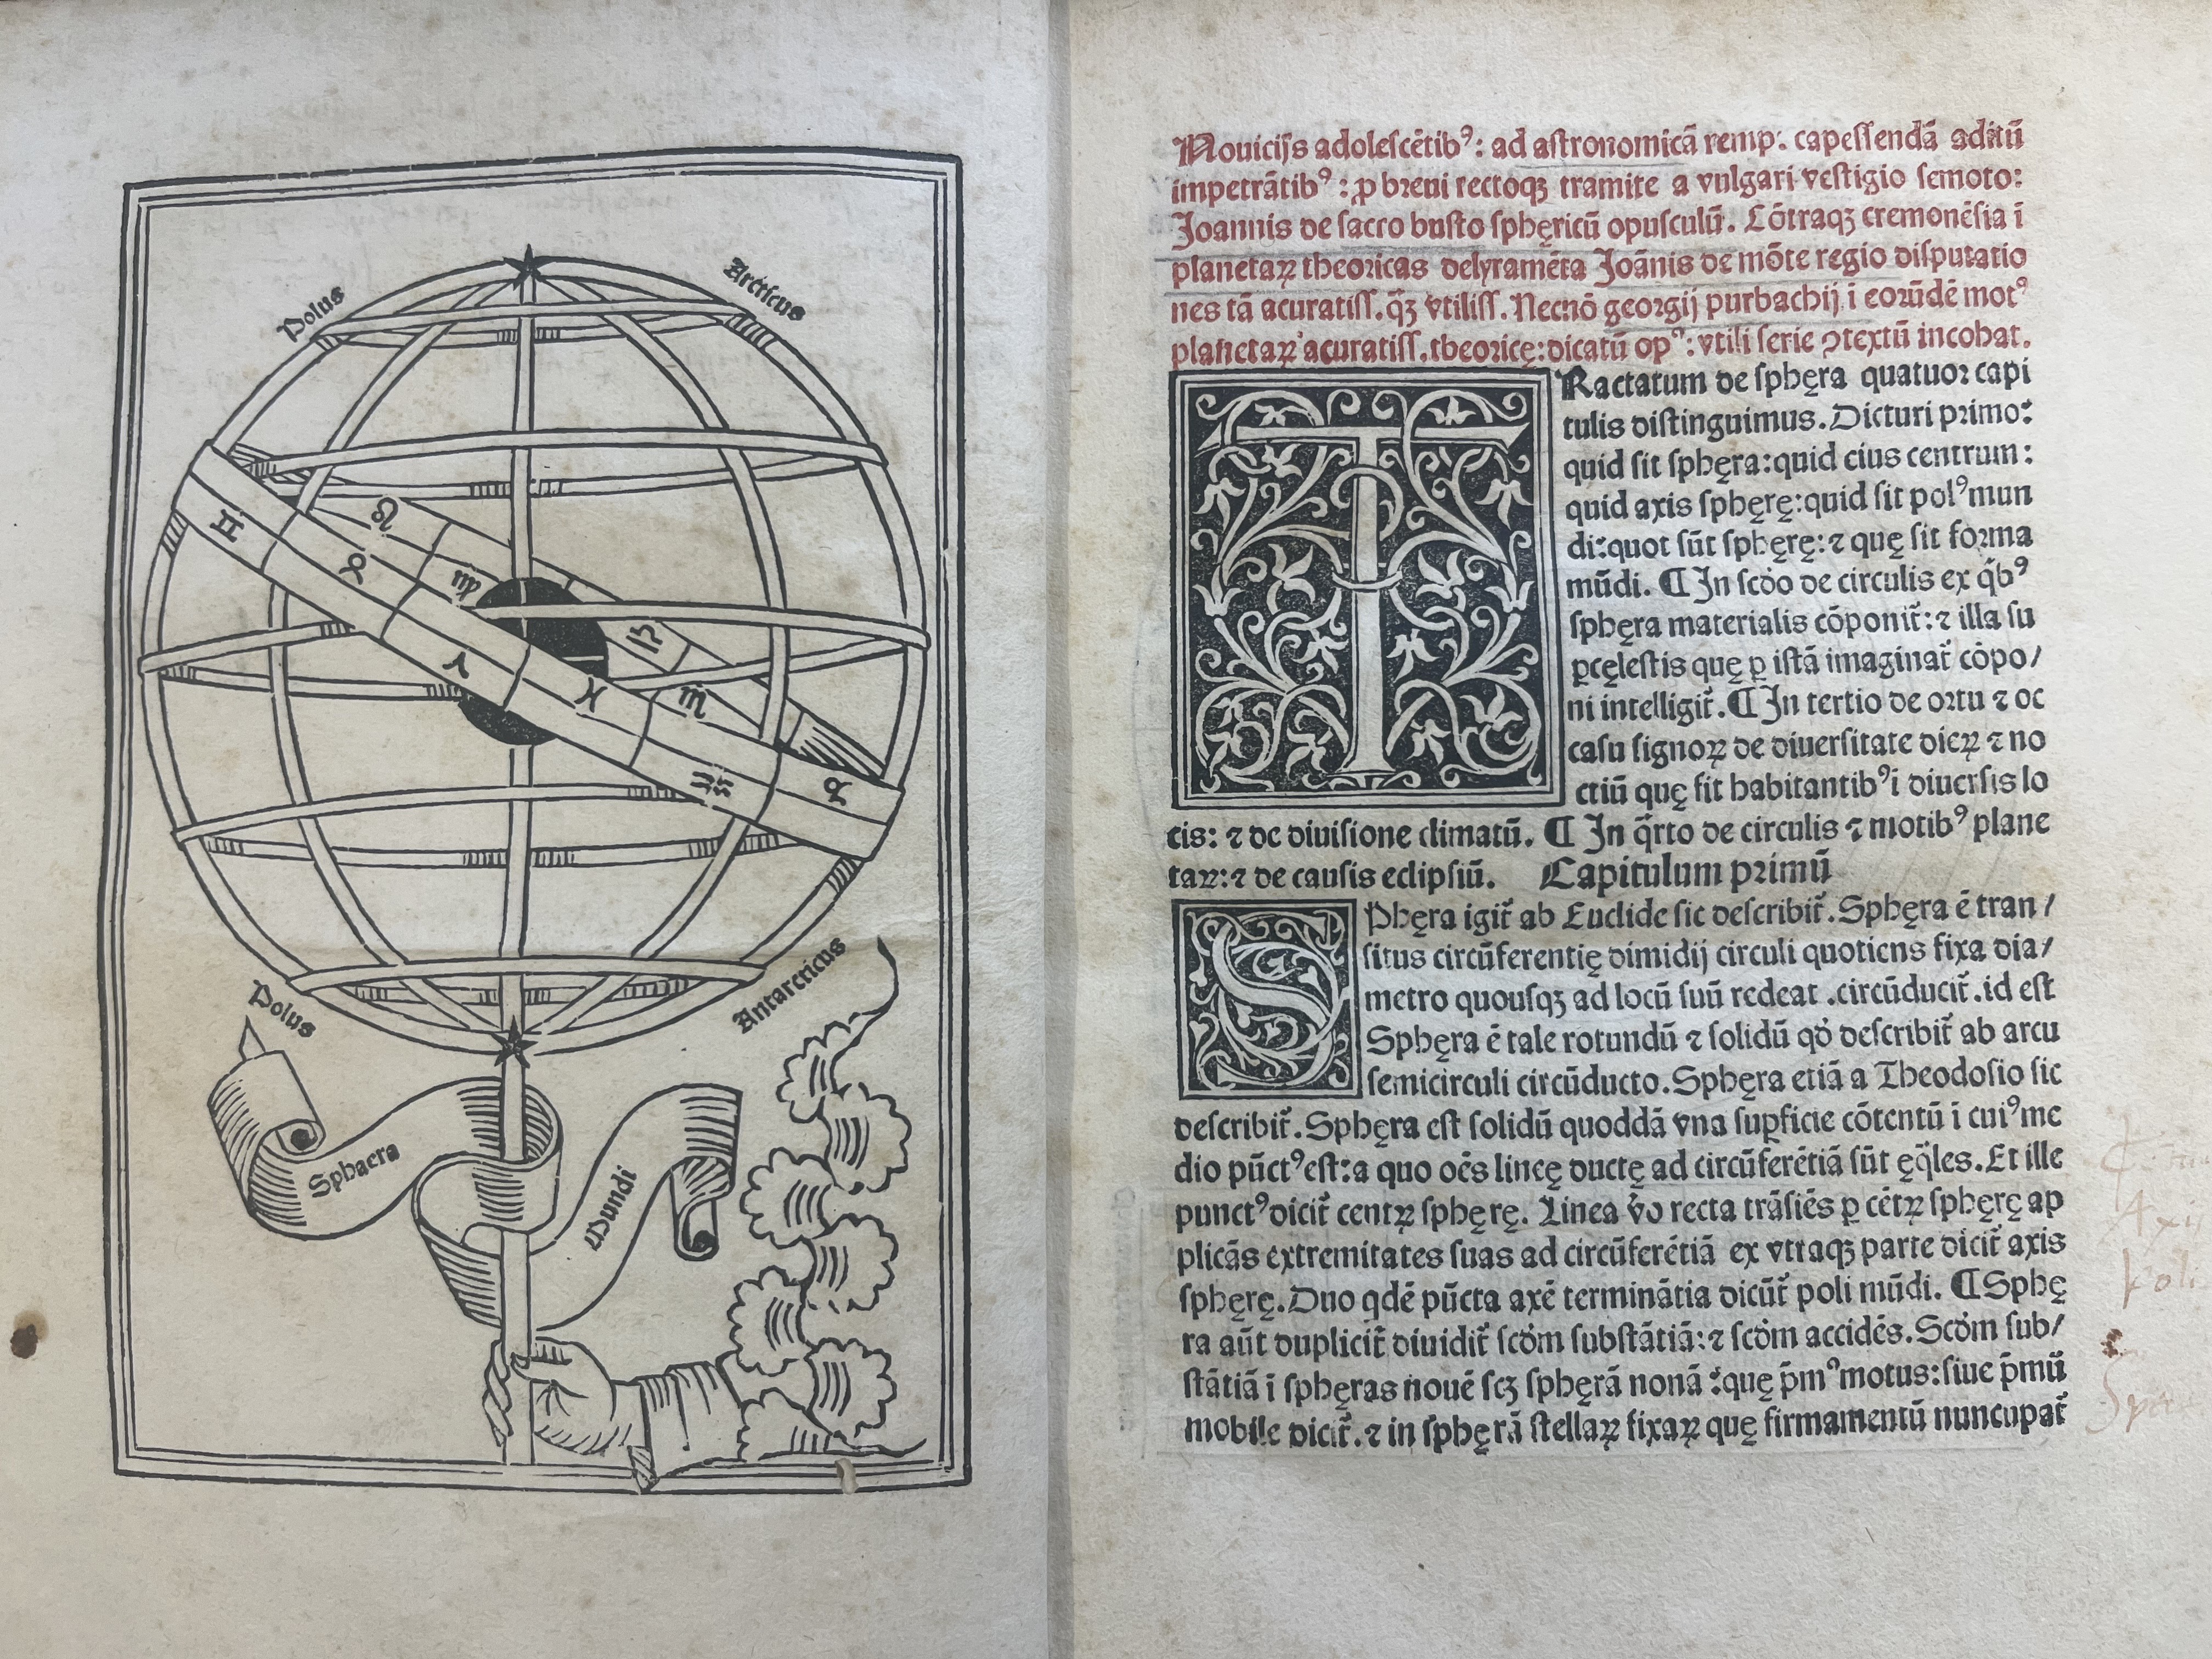 Polus
Arcticus
♌
♊
♉
♍
♈
♎
♓
♏
♒
♑
Polus
Antarcticus
Sphaera
Mundi
Nouicijs adoleſcētibꝰ: ad aſtronomicā remp. capeſſendā aditū
impetrātibꝰ: ꝓ breui rectoqꝫ tramite a vulgari veſtigio ſemoto:
Joannis de ſacro buſto ſphęricū opuſculū. Cōtraqꝫ cremonēſia ī
planetaꝝ theoricas delyramēta Joānis de mōte regio diſputatio
nes tā acuratiſſ. q̄ꝫ vtiliſſ. Necnō georgij purbachij ī eorūdē motꝰ
planetaꝝ acuratiſſ. theoricę: dicatū opꝰ: vtili ſerie ꝯtextū inchoat.
TRactatum de ſphęra quatuor capi
tulis diſtinguimus. Dicturi primo:
quid ſit ſphęra: quid eius centrum:
quid axis ſphęrę: quid ſit polꝰ mun
di: quot ſūt ſphęrę: ⁊ quę ſit forma
mūdi. ¶ In ſcḋo de circulis ex q̇bꝰ
ſphęra materialis cōponit᷑: ⁊ illa ſu
ꝑcęleſtis quę ꝑ iſtā imaginat᷑ cōpo/
ni intelligit᷑. ¶ In tertio de ortu ⁊ oc
caſu ſignoꝝ de diuerſitate dieꝝ ⁊ no
ctiū quę fit habitantibꝰ ī diuerſis lo
cis: ⁊ de diuiſione climatū. ¶ In q̄rto de circulis ⁊ motibꝰ plane
taꝝ: ⁊ de cauſis eclipſiū. Capitulum primū
SPhęra igit᷑ ab Euclide ſic deſcribit᷑. Sphęra ē tran/
ſitus circūferentię dimidij circuli quotiens fixa dia/
metro quouſqꝫ ad locū ſuū redeat . circūducit᷑. id eſt
Sphęra ē tale rotundū ⁊ ſolidū qḋ deſcribit᷑ ab arcu
ſemicirculi circūducto. Sphęra etiā a Theodoſio ſic
deſcribit᷑. Sphęra eſt ſolidū quoddā vna ſuꝑficie cōtentū ī cuiꝰ me
dio pūctꝰ eſt: a quo oēs lineę ductę ad circūferētiā ſūt ęq̄les. Et ille
punctꝰ dicit᷑ centꝝ ſphęrę. Linea v̇o recta trāſiēs ꝑ cētꝝ ſphęrę ap
plicās extremitates ſuas ad circūferētiā ex vtraqꝫ parte dicit᷑ axis
ſphęrę. Duo qdē pūcta axē terminātia dicūt᷑ poli mūdi. ¶ Sphę
ra aūt duplicit᷑ diuidit᷑ ſcḋm ſubſtātiā: ⁊ ſcḋm accidēs. Scḋm ſub/
ſtātiā ī ſphęras nouē ſcꝫ ſphęrā nonā: quę p̄mꝰ motus: ſiue p̄mū
mobile dicit᷑. ⁊ in ſphęrā ſtellaꝝ fixaꝝ quę firmamentū nuncupat᷑
Axi
poli